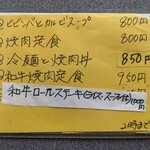 ビビンバとカルビスープ 800円
焼肉定食 800円
冷麺と焼肉丼 850円
和牛焼肉定食 950円
和牛ロールステーキ(ライス・スープ付)1000円
2時まで